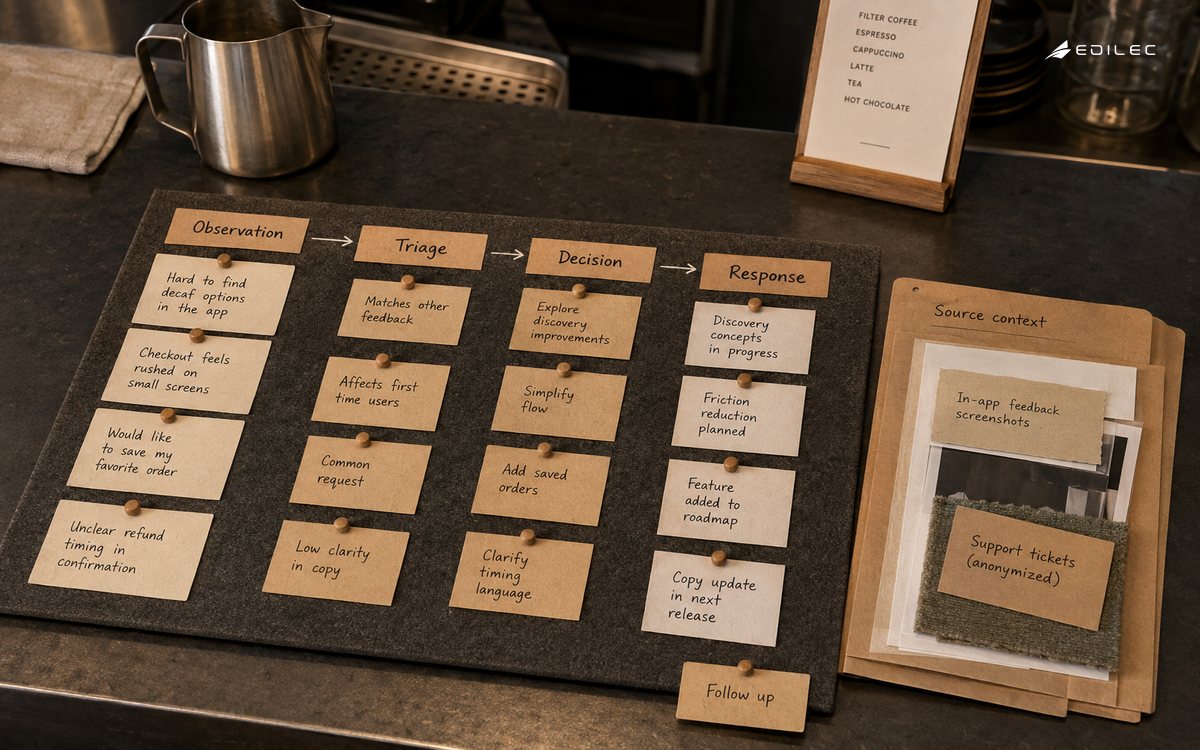 FILTER COFFEE
ESPRESSO
CAPPUCCINO
LATTE
TEA
HOT CHOCOLATE
EDILEC
Observation
Triage
Decision
Response
Hard to find
decaf options
in the app
Matches other
feedback
Explore
discovery
improvements
Discovery
concepts
in progress
Checkout feels
rushed on
small screens
Affects first
time users
Simplify
flow
Friction
reduction
planned
Would like
to save my
favorite order
Common
request
Add saved
orders
Feature
added to
roadmap
Unclear refund
timing in
confirmation
Low clarity
in copy
Clarify
timing
language
Copy update
in next
release
Follow up
Source context
In-app feedback
screenshots
Support tickets
(anonymized)